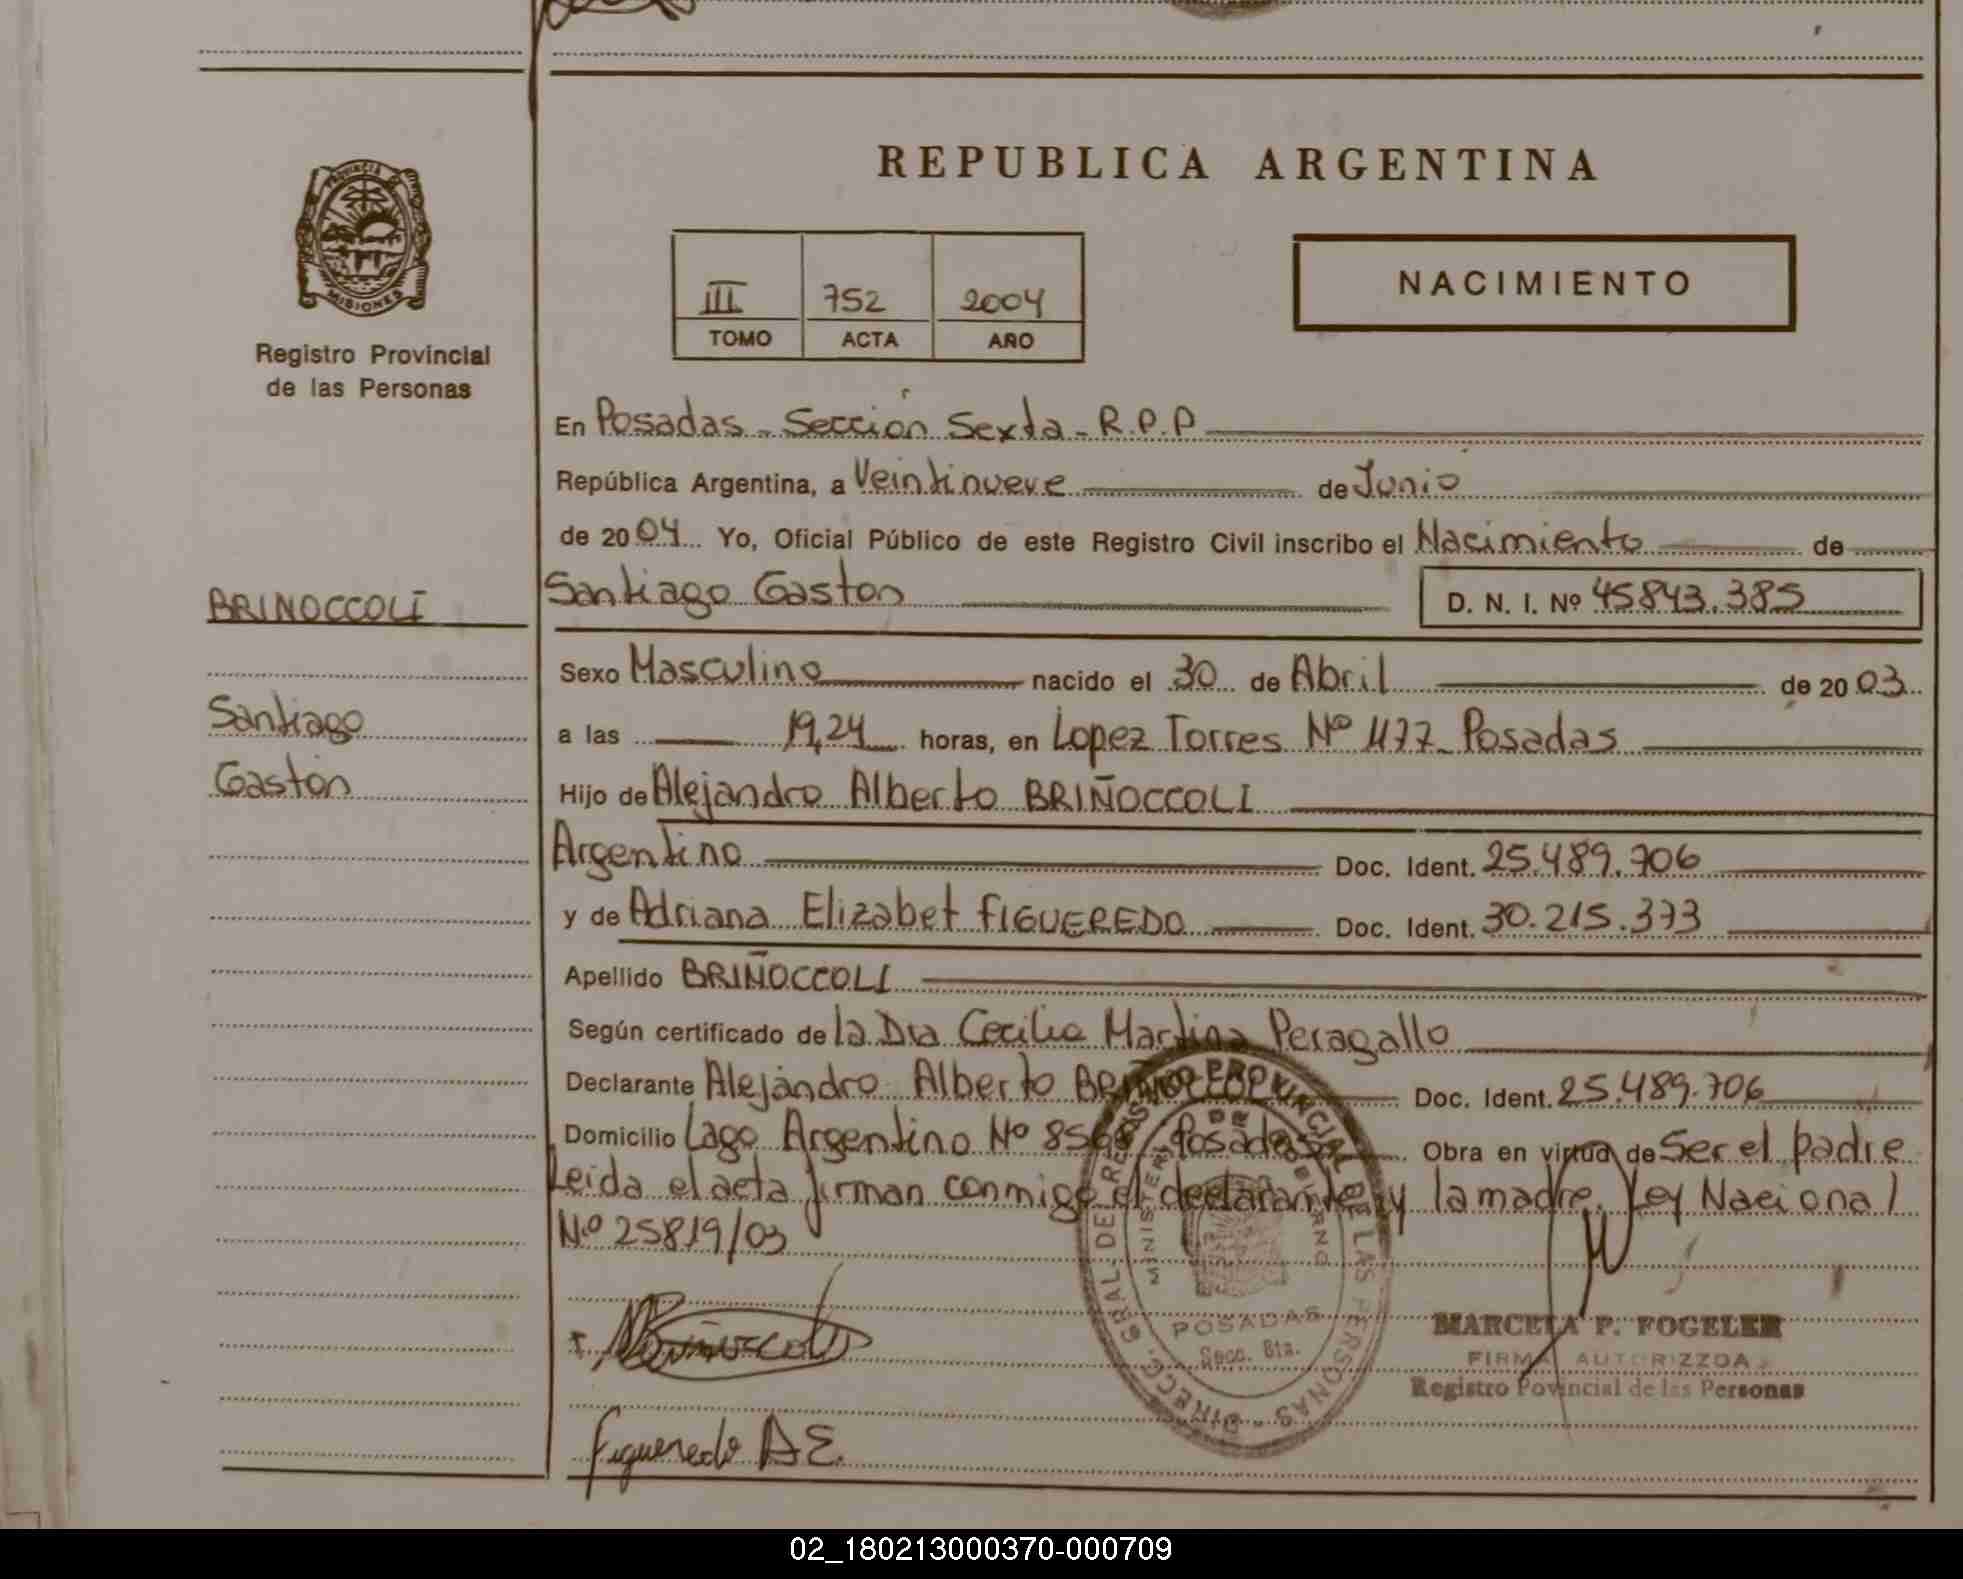 PROVINCIA DE
MISIONES
Registro Provincial
de las Personas
BRINOCCOLI
Santiago
Gastón
REPUBLICA ARGENTINA
III 752 2004
TOMO ACTA AÑO
NACIMIENTO
En Posadas - Sección Sexta - R.P.P
República Argentina, a Veintinueve de Junio
de 2004 Yo, Oficial Público de este Registro Civil inscribo el Nacimiento de
Santiago Gaston D. N. I. Nº 45843.385
Sexo Masculino nacido el 30 de Abril de 2003
a las 19,24 horas, en Lopez Torres Nº 1177 Posadas
Hijo de Alejandro Alberto BRIÑOCCOLI
Argentino Doc. Ident. 25.489.706
y de Adriana Elizabet FIGUEREDO Doc. Ident. 30.215.373
Apellido BRIÑOCCOLI
Según certificado de la Dra Cecilia Martina Peragallo
Declarante Alejandro Alberto BRIÑOCCOLI Doc. Ident. 25.489.706
Domicilio Lago Argentino Nº Posadas Obra en virtud de Ser el padre
Leida el acta firman conmigo el declarante y la madre. Ley Nacional
Nº 25819/03
DIRECC. GRAL. DE REGISTRO PROVINCIAL DE LAS PERSONAS
MINISTERIO DE GOBIERNO
POSADAS
Secc. 6ta.
MARCELA P. FOGELER
FIRMA AUTORIZZDA
Registro Povincial de las Personas
Briñoccoli
Figueredo A E.
02_180213000370-000709